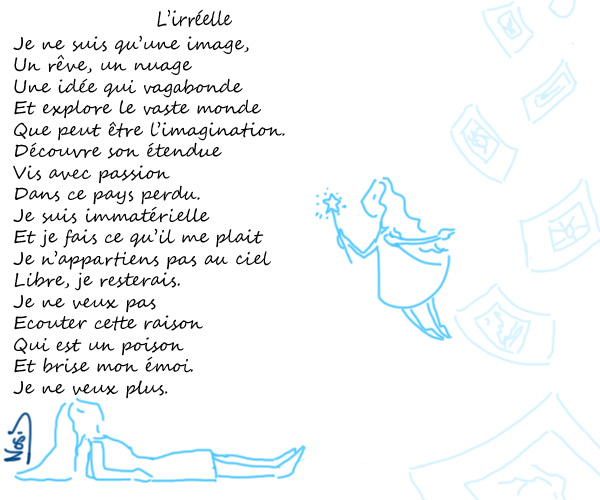 L'irréelle
Je ne suis qu'une image,
Un rêve, un nuage
Une idée qui vagabonde
Et explore le vaste monde
Que peut être l'imagination.
Découvre son étendue
Vis avec passion
Dans ce pays perdu.
Je suis immatérielle
Et je fais ce qu'il me plait
Je n'appartiens pas au ciel
Libre, je resterais.
Je ne veux pas
Ecouter cette raison
Qui est un poison
Et brise mon émoi.
Je ne veux plus.